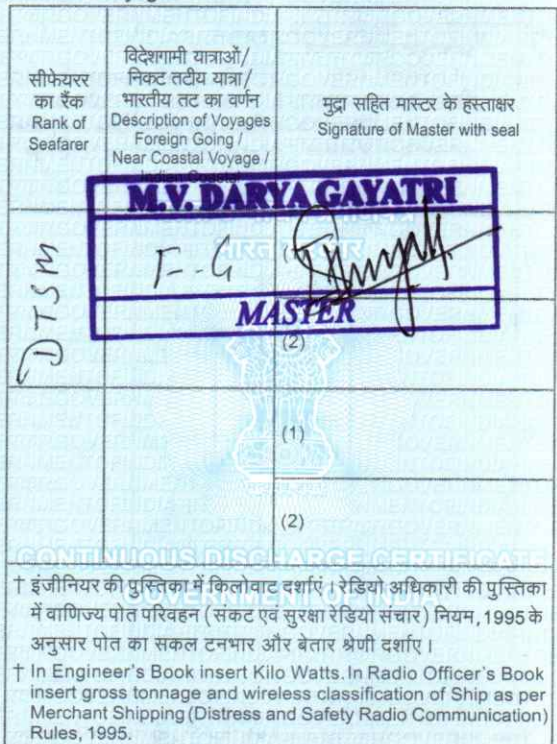 सीफेयरर
का रैंक
Rank of
Seafarer
विदेशगामी यात्राओं/
निकट तटीय यात्रा/
भारतीय तट का वर्णन
Description of Voyages
Foreign Going /
Near Coastal Voyage /
Indian Coastal
मुद्रा सहित मास्टर के हस्ताक्षर
Signature of Master with seal
M.V. DARYA GAYATRI
DTSM
F-G
MASTER
(2)
(1)
(2)
CONTINUOUS DISCHARGE CERTIFICATE
GOVERNMENT OF INDIA
† इंजीनियर की पुस्तिका में किलोवाट दर्शाएं । रेडियो अधिकारी की पुस्तिका
में वाणिज्य पोत परिवहन (संकट एवं सुरक्षा रेडियो संचार) नियम, 1995 के
अनुसार पोत का सकल टनभार और बेतार श्रेणी दर्शाए ।
† In Engineer's Book insert Kilo Watts. In Radio Officer's Book
insert gross tonnage and wireless classification of Ship as per
Merchant Shipping (Distress and Safety Radio Communication)
Rules, 1995.